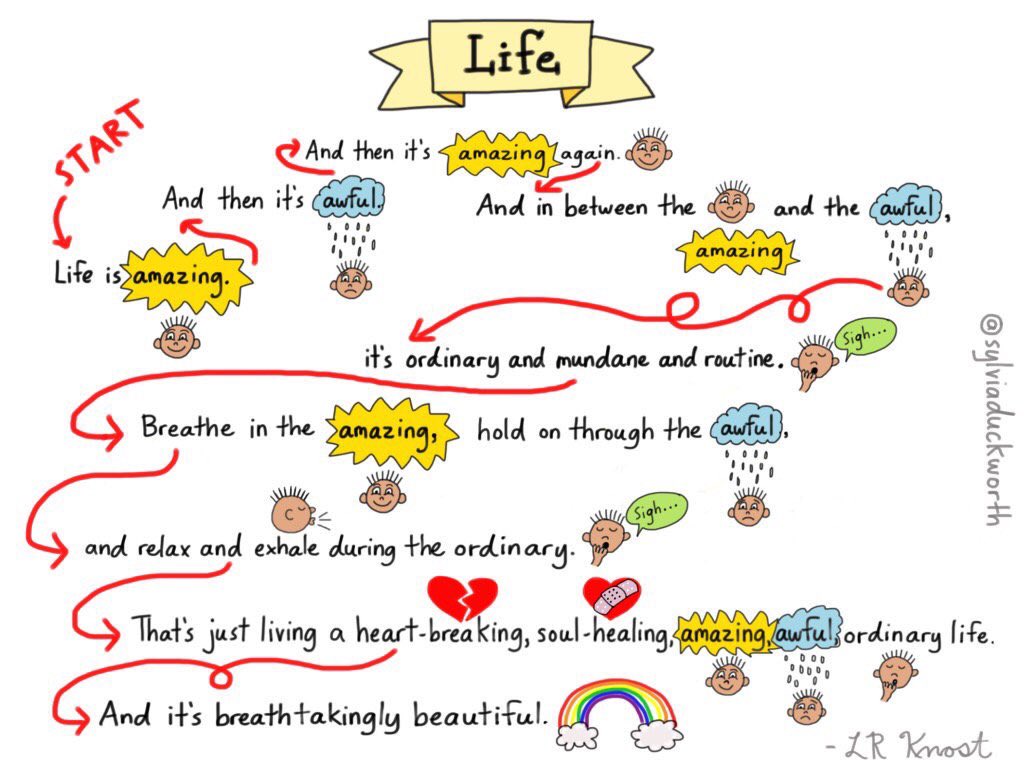 Life
START
Life is amazing.
And then it's awful.
And then it's amazing again.
And in between the amazing and the awful,
it's ordinary and mundane and routine.
Sigh...
Breathe in the amazing, hold on through the awful,
and relax and exhale during the ordinary.
Sigh...
That's just living a heart-breaking, soul-healing, amazing, awful, ordinary life.
And it's breathtakingly beautiful.
- LR Knost
@sylviaduckworth